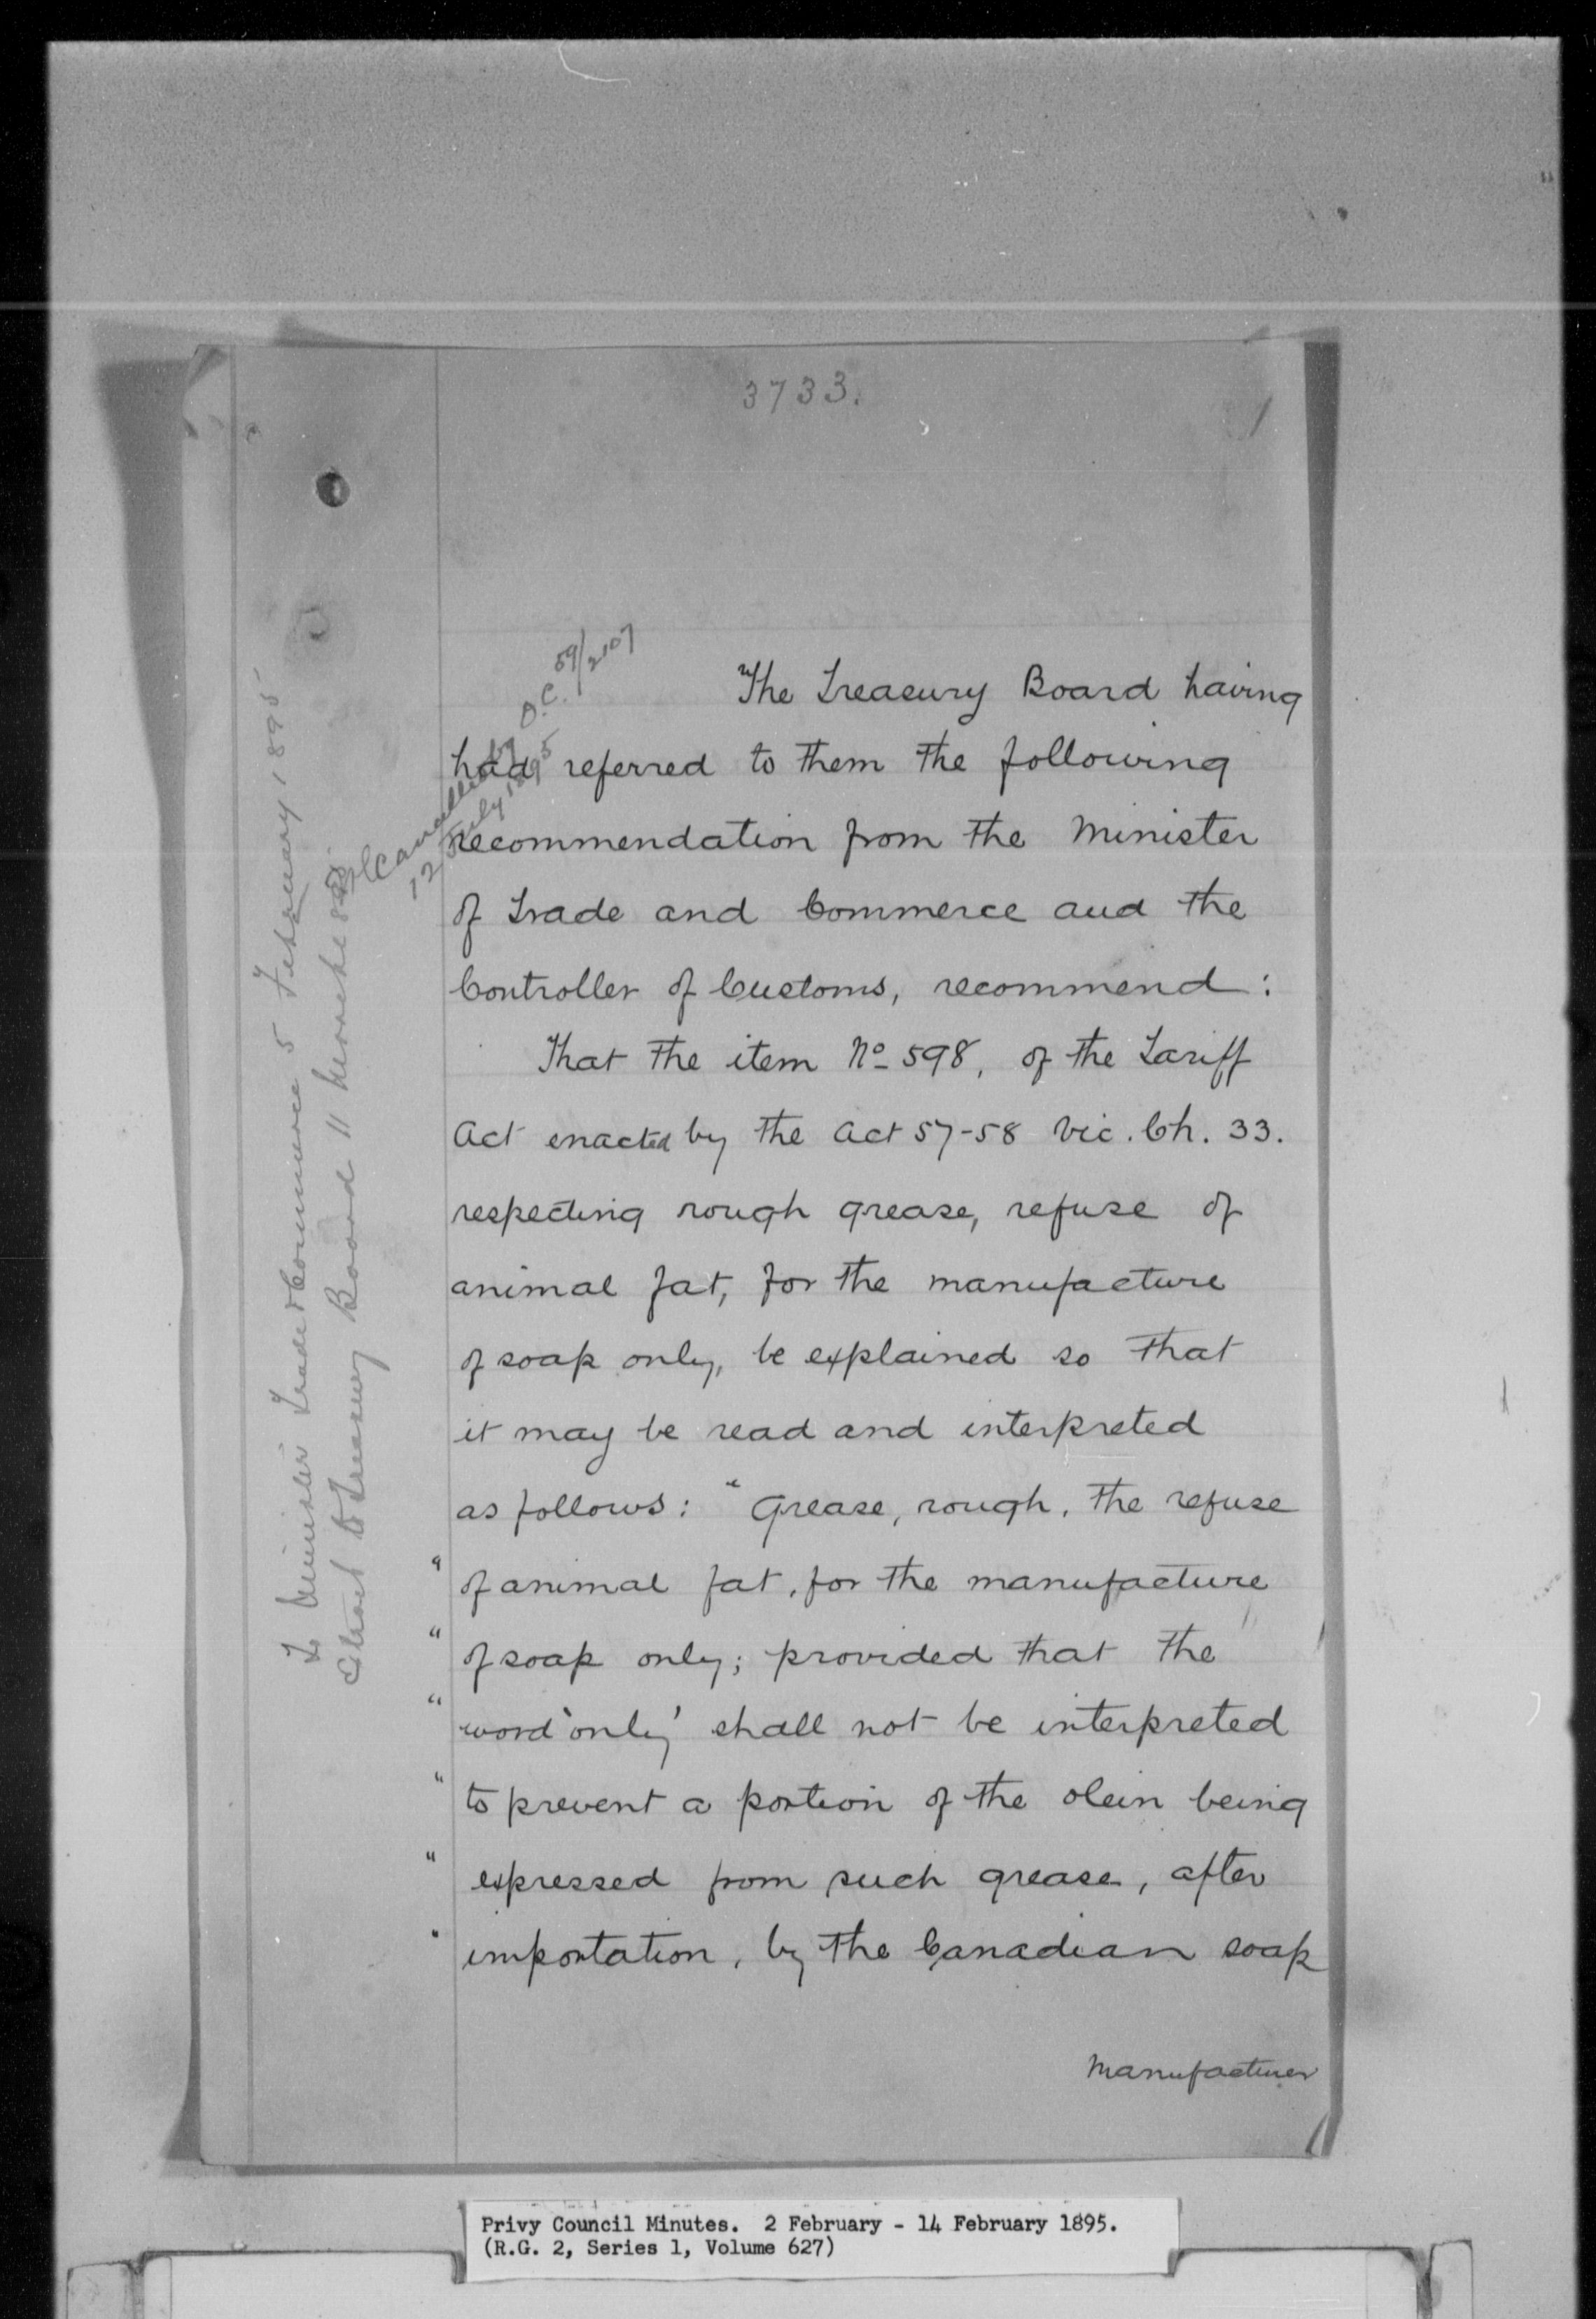 3733.
The Treasury Board having
had referred to them the following
recommendation from the Minister
of Trade and Commerce and the
Controller of Customs, recommend:
That the item No 598, of the Tariff
Act enacted by the Act 57-58 Vic. Ch. 33.
respecting rough grease, refuse of
animal fat, for the manufacture
of soap only, be explained so that
it may be read and interpreted
as follows: "Grease, rough, the refuse
" of animal fat, for the manufacture
" of soap only; provided that the
" word 'only' shall not be interpreted
" to prevent a portion of the olein being
" expressed from such grease, after
" importation, by the Canadian soap
manufacturer
To Minister Trade & Commerce 5 February 1895
Extract to Treasury Board 11
Cancelled by O.C. 59/2107
12 July 1895
Privy Council Minutes. 2 February - 14 February 1895.
(R.G. 2, Series 1, Volume 627)